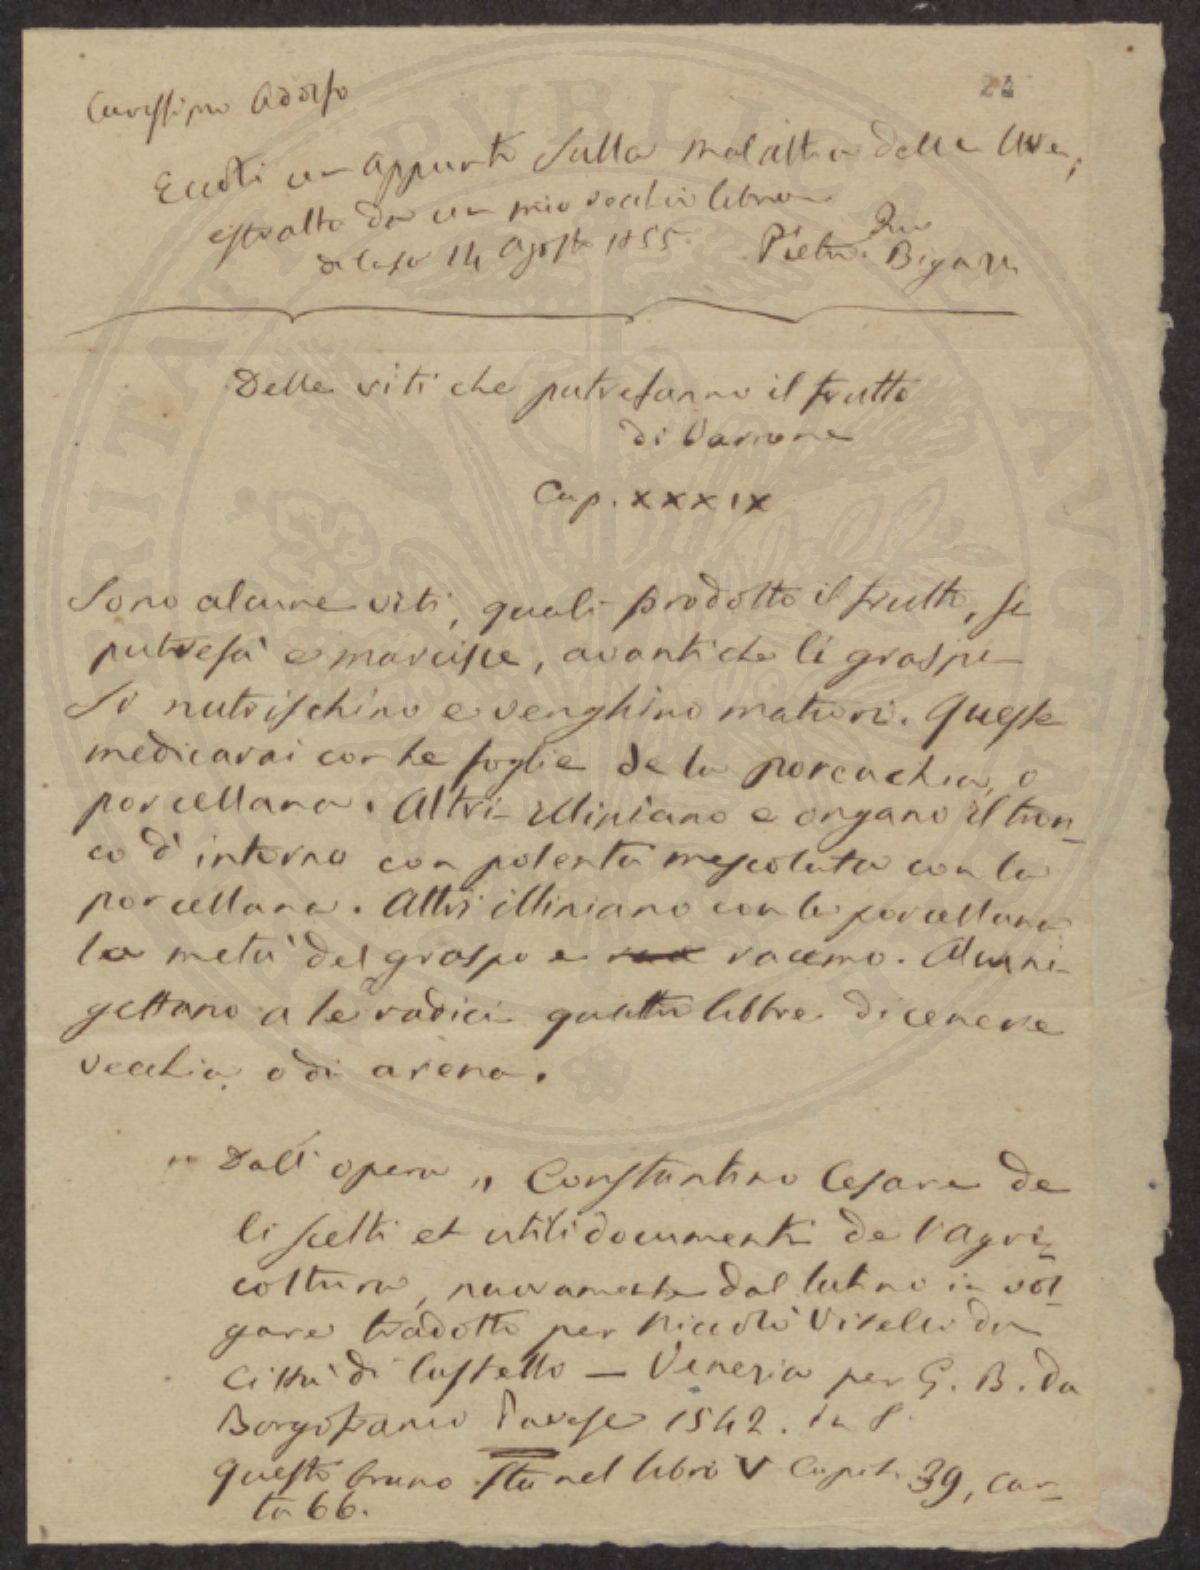 24
Carissimo Adolfo
Eccoti un appunto sulla malattia delle Uve,
estratto da un mio vecchio libricino
di Casa 14 Agosto 1855. Pietro Bigazzi
Delle viti che putrefanno il frutto
di Varrone
Cap. XXXIX
Sono alcune viti, quali prodotto il frutto, si
putrefà e marcisce, avanti che li graspi
si nutrischino e venghino maturi. Queste
medicarai con le foglie de la porcachia, o
porcellana. Altri illiniano e ongano il tron-
co d'intorno con polenta mescolata con la
porcellana. Altri illiniano con la porcellana
la metà del graspo e racemo. Alcuni
gettano a le radici quattro libbre di cenere
vecchia, o di arena.
" Dall' opera " Constantino Cesare de
li scelti et utili documenti de l'agri-
coltura, nuovamente dal latino in vol-
gare tradotto per Niccolò Vitelli da
Città di Castello — Venezia per G. B. da
Borgofranco Pavese 1542. in 8.
questo brano sta nel libro V Capit. 39, car-
ta 66.